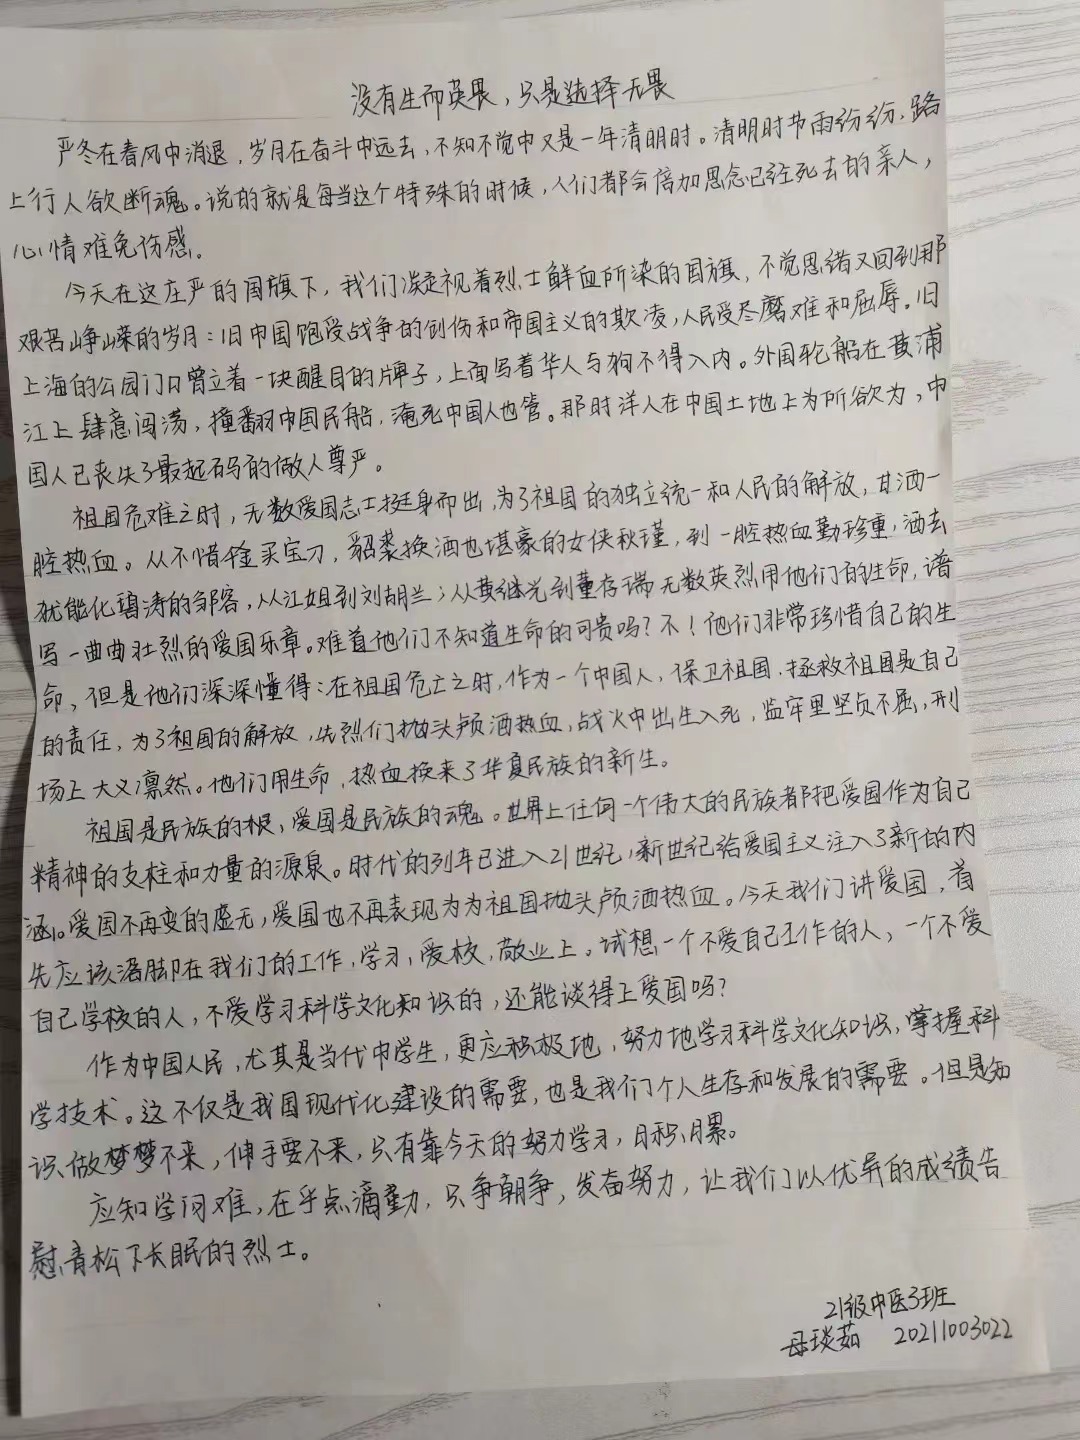 没有生而英畏，只是选择无畏
严冬在春风中消退，岁月在奋斗中远去，不知不觉中又是一年清明时。清明时节雨纷纷，路
上行人欲断魂。说的就是每当这个特殊的时候，人们都会倍加思念已经死去的亲人，
心情难免伤感。
今天在这庄严的国旗下，我们凝视着烈士鲜血所染的国旗，不觉思绪又回到那
艰苦峥嵘的岁月：旧中国饱受战争的创伤和帝国主义的欺凌，人民受尽磨难和屈辱。旧
上海的公园门口曾立着一块醒目的牌子，上面写着华人与狗不得入内。外国轮船在黄浦
江上肆意闯荡，撞翻中国民船，淹死中国人也管。那时洋人在中国土地上为所欲为，中
国人已丧失了最起码的做人尊严。
祖国危难之时，无数爱国志士挺身而出，为了祖国的独立统一和人民的解放，甘洒一
腔热血。从不惜千金买宝刀，貂裘换酒也堪豪的女侠秋瑾，到一腔热血勤珍重，洒去
犹能化碧涛的邹容，从江姐到刘胡兰；从黄继光到董存瑞无数英烈用他们的生命，谱
写一曲曲壮烈的爱国乐章。难道他们不知道生命的可贵吗？不！他们非常珍惜自己的生
命，但是他们深深懂得：在祖国危亡之时，作为一个中国人，保卫祖国，拯救祖国是自己
的责任，为了祖国的解放，先烈们抛头颅洒热血，战火中出生入死，监牢里坚贞不屈，刑
场上大义凛然。他们用生命，热血换来了华夏民族的新生。
祖国是民族的根，爱国是民族的魂。世界上任何一个伟大的民族都把爱国作为自己
精神的支柱和力量的源泉。时代的列车已进入21世纪，新世纪给爱国主义注入了新的内
涵。爱国不再变的虚无，爱国也不再表现为为祖国抛头颅洒热血。今天我们讲爱国，首
先应该落脚在我们的工作，学习，爱校，敬业上。试想一个不爱自己工作的人，一个不爱
自己学校的人，不爱学习科学文化知识的，还能谈得上爱国吗？
作为中国人民，尤其是当代中学生，更应积极地，努力地学习科学文化知识，掌握科
学技术。这不仅是我国现代化建设的需要，也是我们个人生存和发展的需要。但是知
识做梦梦不来，伸手要不来，只有靠今天的努力学习，日积月累。
应知学问难，在乎点滴勤，只争朝争，发奋努力，让我们以优异的成绩告
慰青松下长眠的烈士。
21级中医3班
母琰茹 20211003022